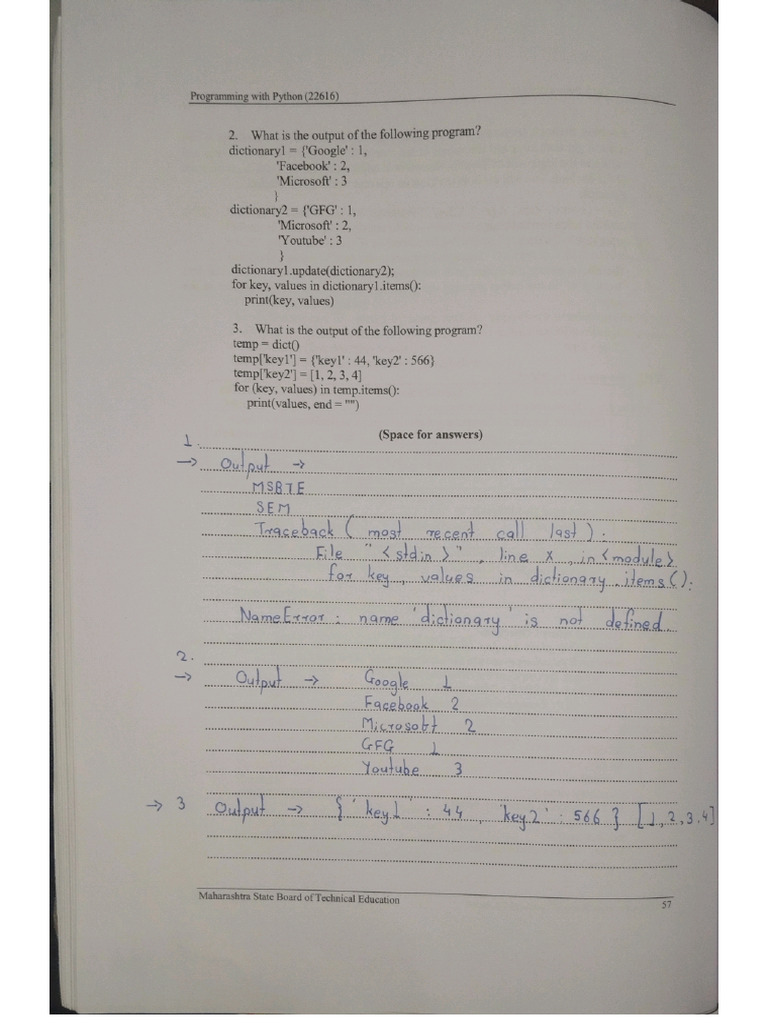 Programming with Python (22616)
2. What is the output of the following program?
dictionary1 = {'Google' : 1,
'Facebook' : 2,
'Microsoft' : 3
}
dictionary2 = {'GFG' : 1,
'Microsoft' : 2,
'Youtube' : 3
}
dictionary1.update(dictionary2);
for key, values in dictionary1.items():
print(key, values)
3. What is the output of the following program?
temp = dict()
temp['key1'] = {'key1' : 44, 'key2' : 566}
temp['key2'] = [1, 2, 3, 4]
for (key, values) in temp.items():
print(values, end = "")
(Space for answers)
1.
→ Output →
MSBTE
SEM
Traceback ( most recent call last ) :
File " <stdin> " , line x , in <module>
for key , values in dictionary . items() :
NameError : name 'dictionary' is not defined.
2.
→ Output → Google 1
Facebook 2
Microsoft 2
GFG 1
Youtube 3
→ 3 Output → { 'key1' : 44 , 'key2' : 566 } [1,2,3,4]
Maharashtra State Board of Technical Education
57